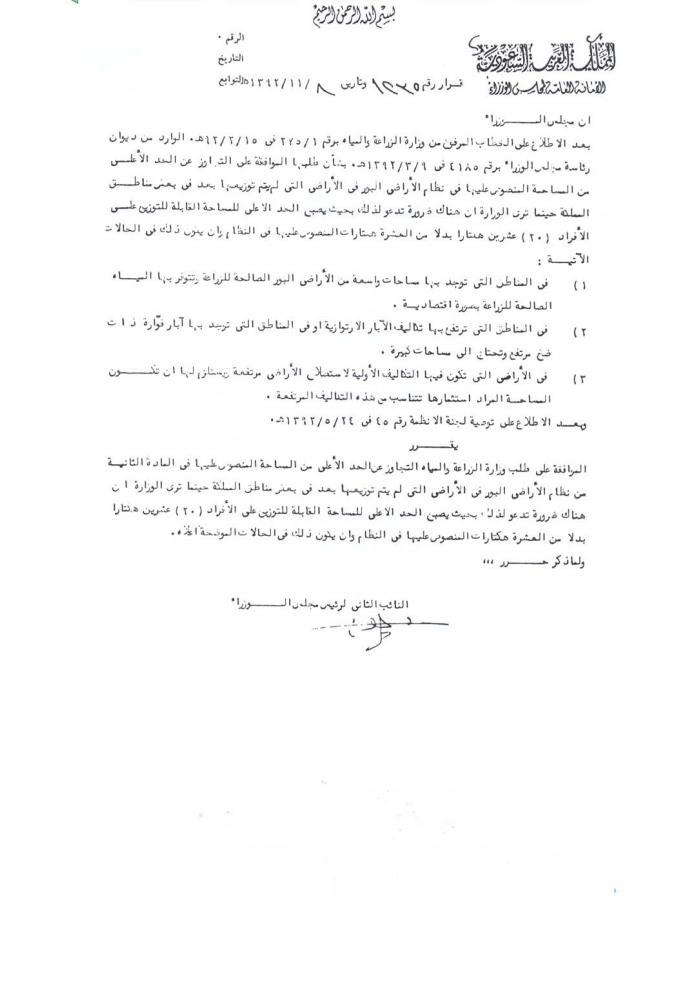 بسم الله الرحمن الرحيم
المملكة العربية السعودية
الأمانة العامة لمجلس الوزراء
الرقم ٠
التاريخ
التوابع
قرار رقم ١٢٣٥ وتاريخ ٨ /١٣٩٢/١١هـ
ان مجلس الــــوزراء
بعد الاطلاع على الخطاب المرفق من وزارة الزراعة والمياه برقم ٢٧٥/١ في ٩٢/٢/١٥هـ. الوارد من ديوان
رئاسة مجلس الوزراء برقم ٤١٨٥ في ١٣٩٢/٣/٩هـ. بشأن طلبها الموافقة على التجاوز عن الحد الأعلــى
من المساحة المنصوص عليها في نظام الأراضي البور في الأراضي التي لم يتم توزيعها بعد في بعض مناطــق
المملكة حينما ترى الوزارة ان هناك ضرورة تدعو لذلك بحيث يصبح الحد الاعلى للمساحة القابلة للتوزيع علــى
الأفراد (٢٠) عشرين هكتارا بدلا من العشرة هكتارات المنصوص عليها في النظام وان يكون ذلك في الحالات
الآتيـة :
١) في المناطق التي توجد بها مساحات واسعة من الأراضي البور الصالحة للزراعة وتتوفر بها الميـــاه
الصالحة للزراعة بصورة اقتصاديــة .
٢) في المناطق التي ترتفع بها تكاليف الآبار الارتوازية او في المناطق التي توجد بها آبار فوارة ذات
ضخ مرتفع وتحتاج الى مساحات كبيرة .
٣) في الأراضي التي تكون فيها التكاليف الأولية لاستصلاح الأراضي مرتفعة ويستلزم لها ان تكـــون
المساحة المراد استثمارها تتناسب مع هذه التكاليف المرتفعة .
وبعــد الاطلاع على توصية لجنة الانظمة رقم ٤٥ في ١٣٩٢/٥/٢٤هـ.
يقـــرر
الموافقة على طلب وزارة الزراعة والمياه التجاوز عن الحد الأعلى من المساحة المنصوص عليها في المادة الثانيــة
من نظام الأراضي البور في الأراضي التي لم يتم توزيعها بعد في بعض مناطق المملكة حينما ترى الوزارة ان
هناك ضرورة تدعو لذلك بحيث يصبح الحد الاعلى للمساحة القابلة للتوزيع على الأفراد (٢٠) عشرين هكتارا
بدلا من العشرة هكتارات المنصوص عليها في النظام وان يكون ذلك في الحالات الموضحة اعلاه.
ولماذكر حـــرر ،،،
النائب الثاني لرئيس مجلس الـــــوزراء